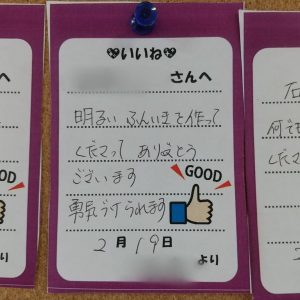 いいね
さんへ
明るい ふんいきを作って
くださって ありがとう
ございます
GOOD
勇気づけられます
2月19日
より
OD
へ
右
何でも
くださ
2